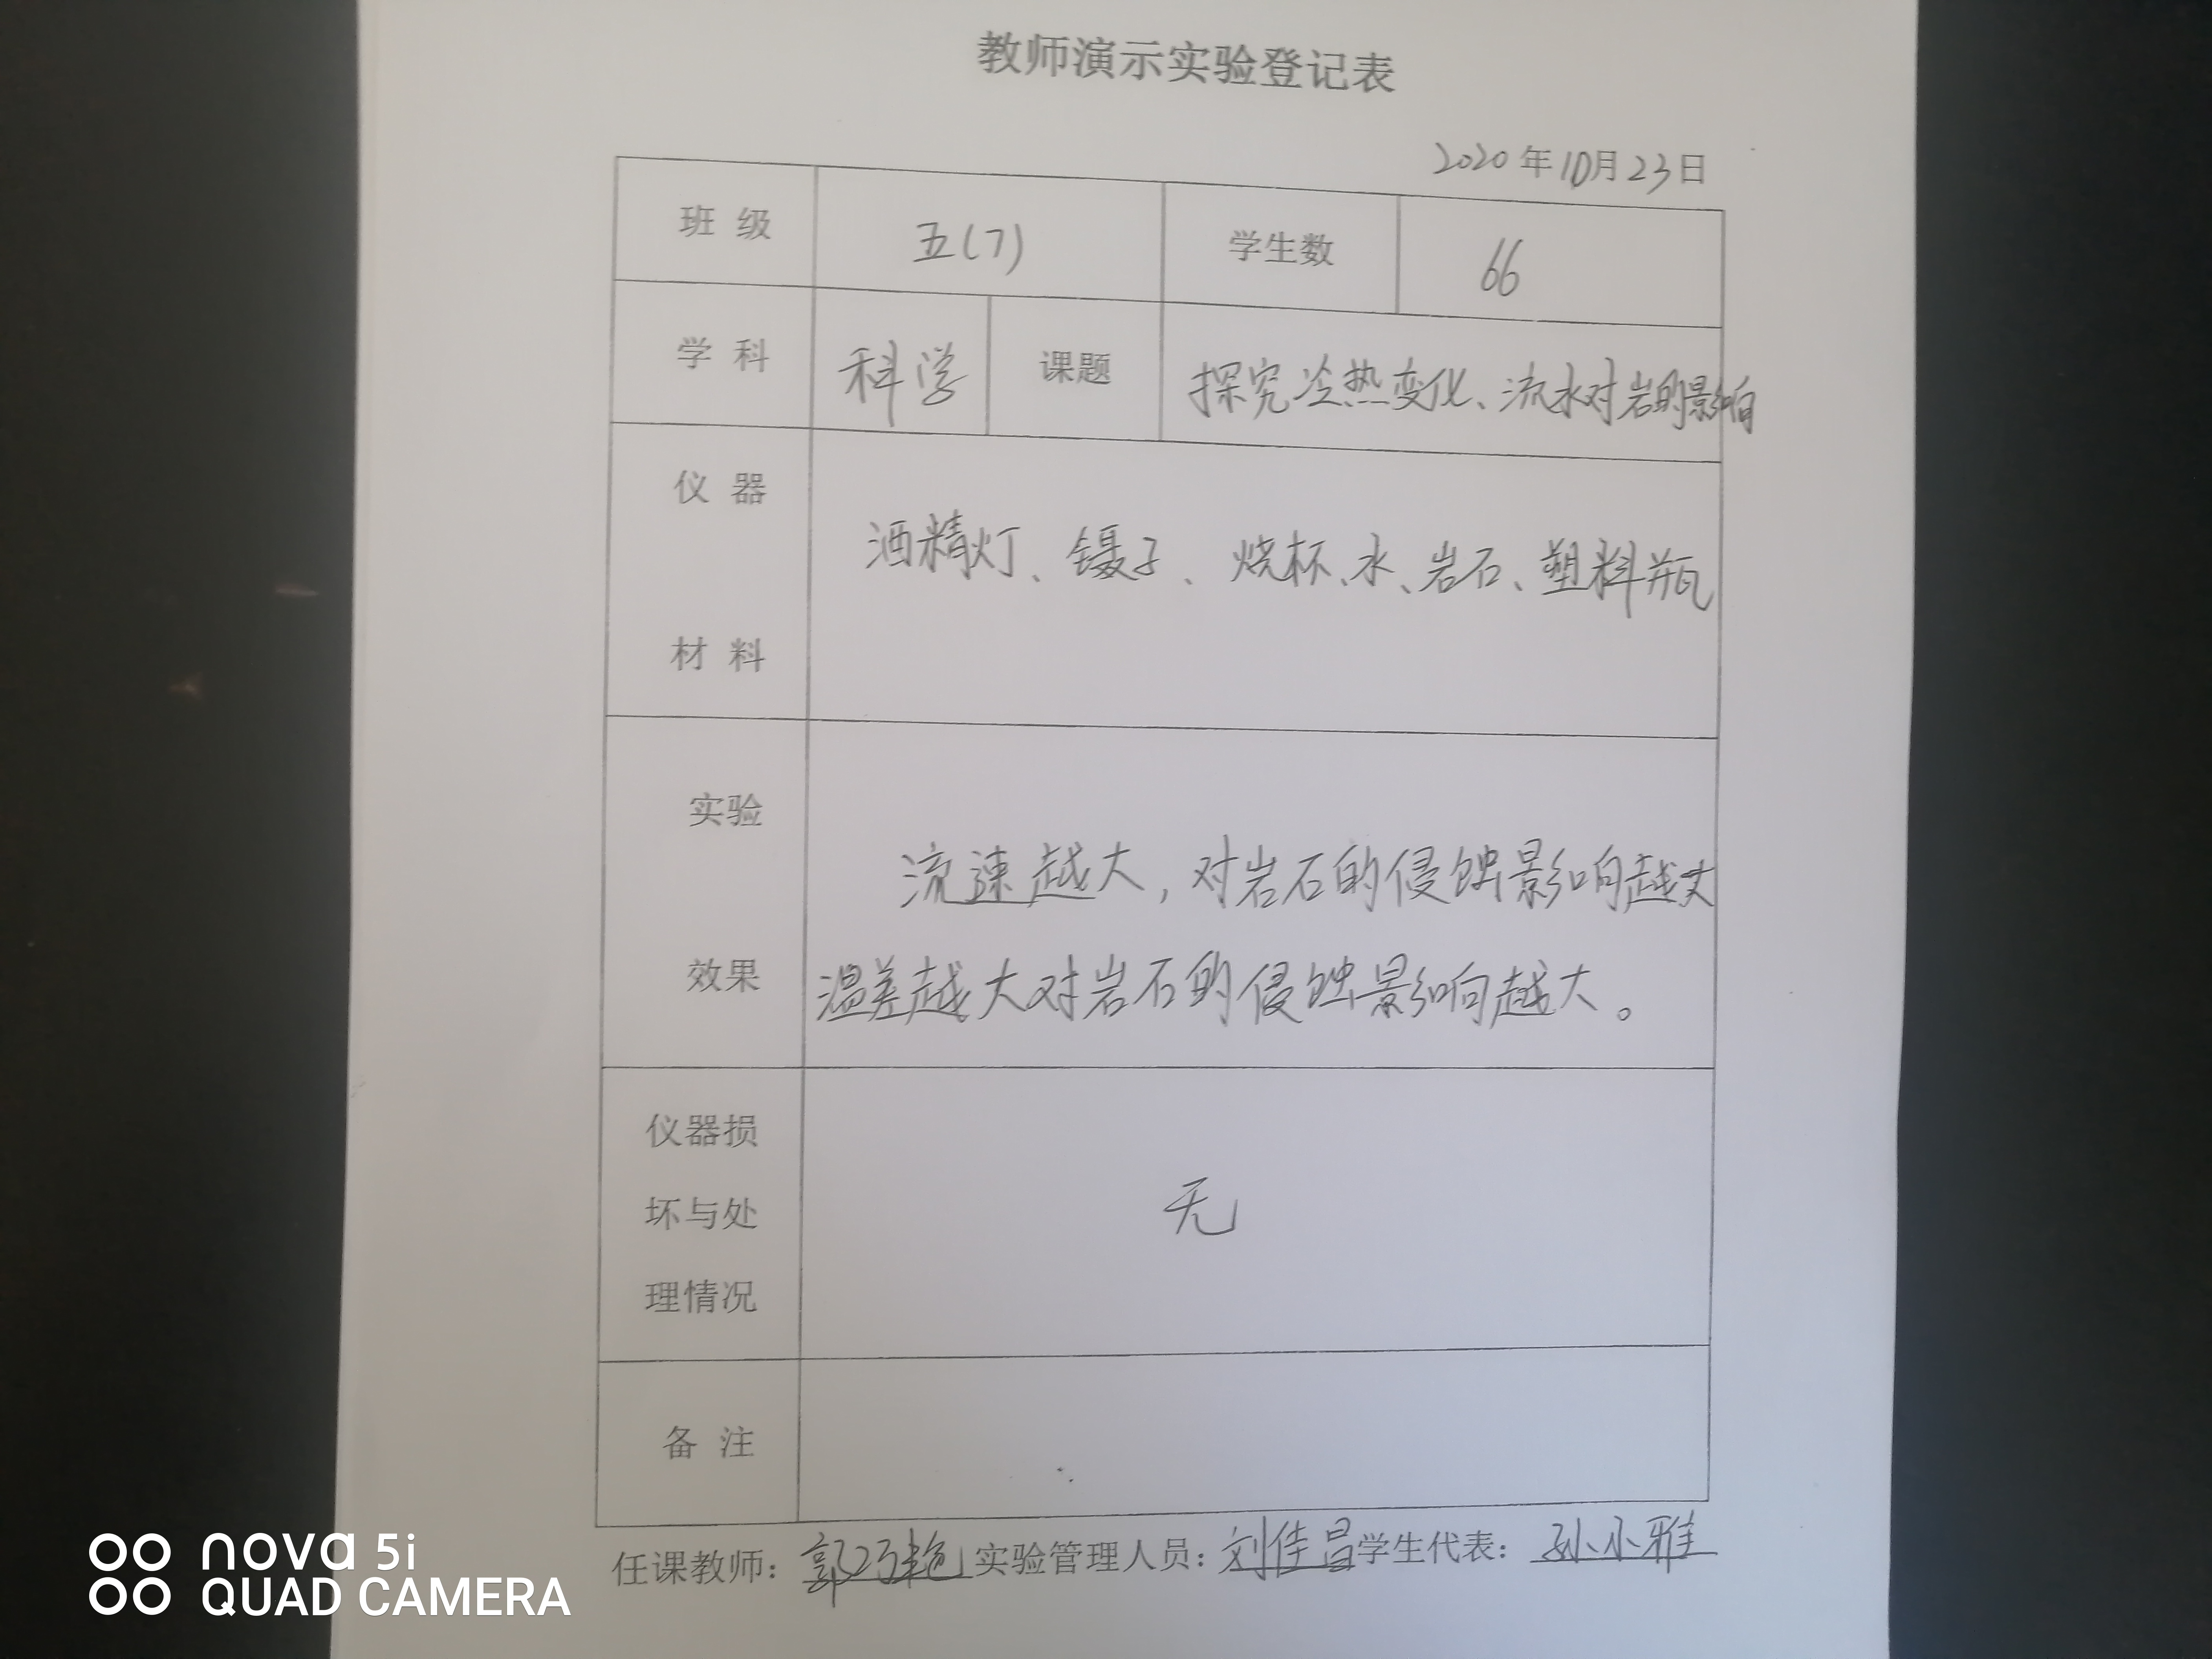 教师演示实验登记表
2020年10月23日
班 级 五(7) 学生数 66
学 科 科学 课题 探究冷热变化、流水对岩的影响
仪 器
酒精灯、镊子、烧杯、水、岩石、塑料瓶
材 料
实验
流速越大,对岩石的侵蚀影响越大
效果 温差越大对岩石的侵蚀影响越大。
仪器损
坏与处 无
理情况
备 注
任课教师:郭巧艳 实验管理人员:刘佳昌 学生代表:孙小雅
nova 5i
QUAD CAMERA